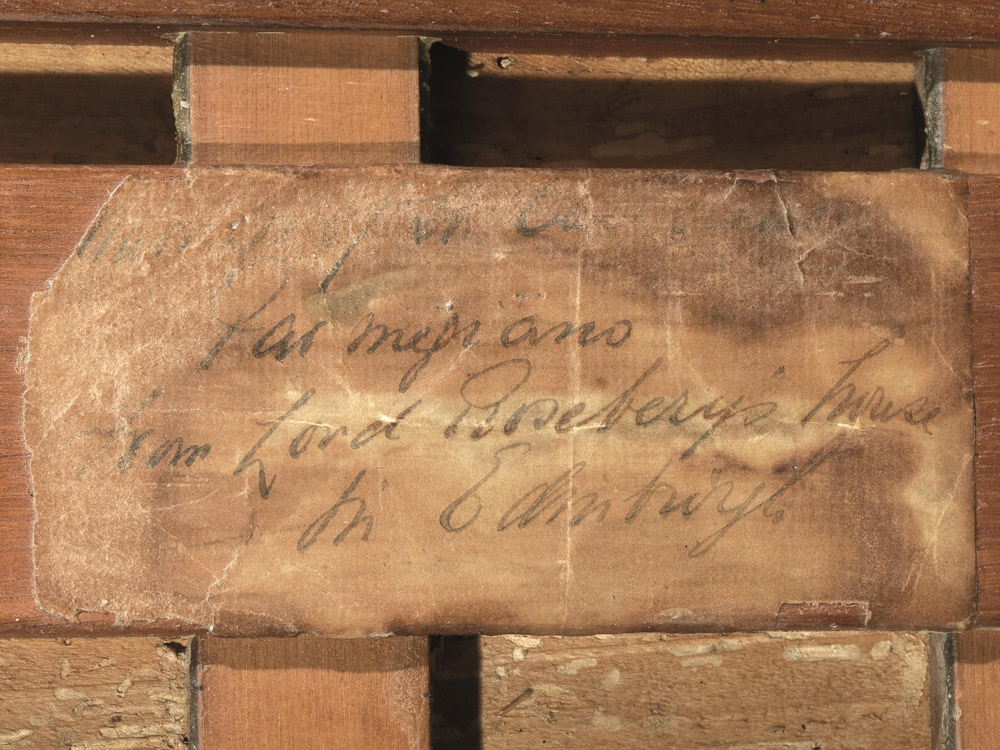 Parmegiano
from Lord Rosebery's house
in Edinburgh